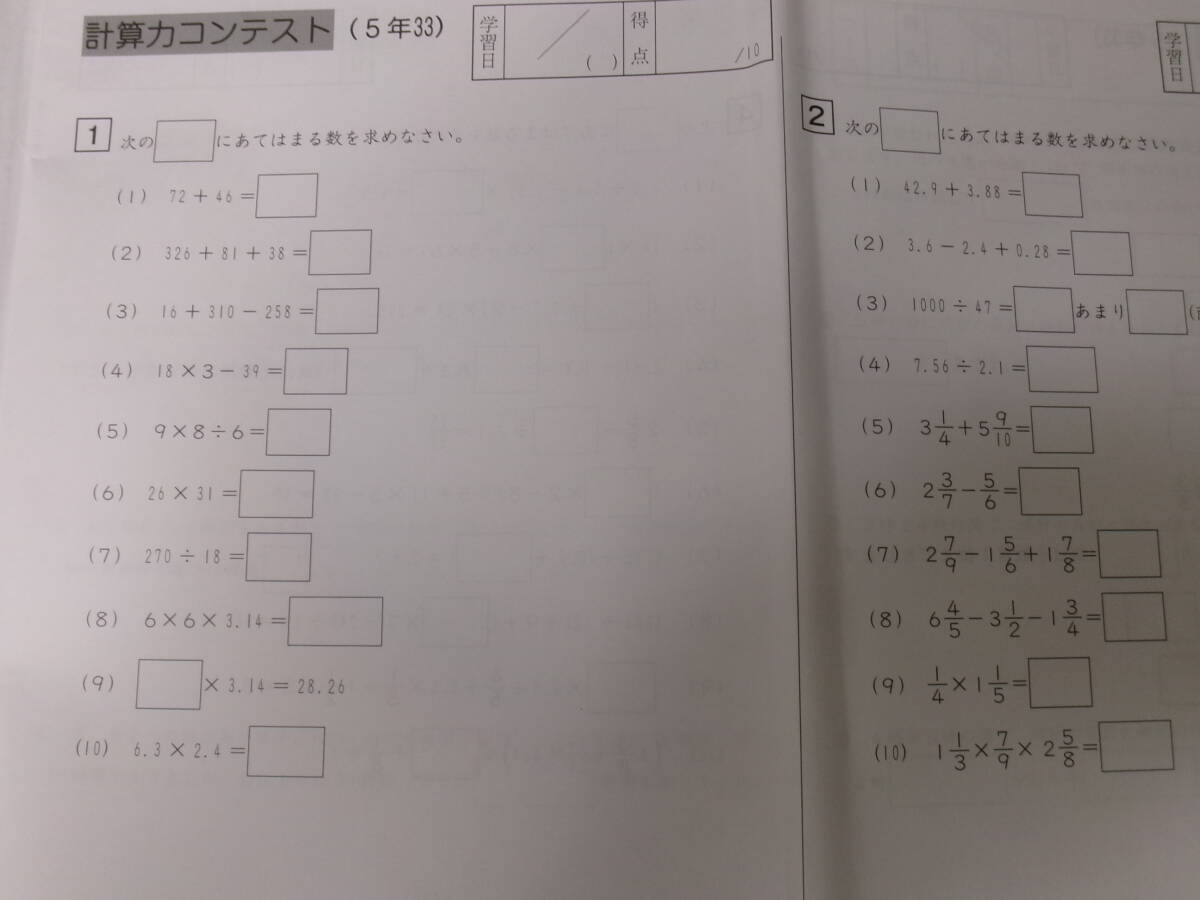 計算力コンテスト（5年33）
学習日 ／ （ ） 得点 /10
1 次の□にあてはまる数を求めなさい。
(1) 72＋46＝□
(2) 326＋81＋38＝□
(3) 16＋310－258＝□
(4) 18×3－39＝□
(5) 9×8÷6＝□
(6) 26×31＝□
(7) 270÷18＝□
(8) 6×6×3.14＝□
(9) □×3.14＝28.26
(10) 6.3×2.4＝□
学習日
2 次の□にあてはまる数を求めなさい。
(1) 42.9＋3.88＝□
(2) 3.6－2.4＋0.28＝□
(3) 1000÷47＝□あまり□
(4) 7.56÷2.1＝□
(5) 3 1/4＋5 9/10＝□
(6) 2 3/7－5/6＝□
(7) 2 7/9－1 5/6＋1 7/8＝□
(8) 6 4/5－3 1/2－1 3/4＝□
(9) 1/4×1 1/5＝□
(10) 1 1/3×7/9×2 5/8＝□